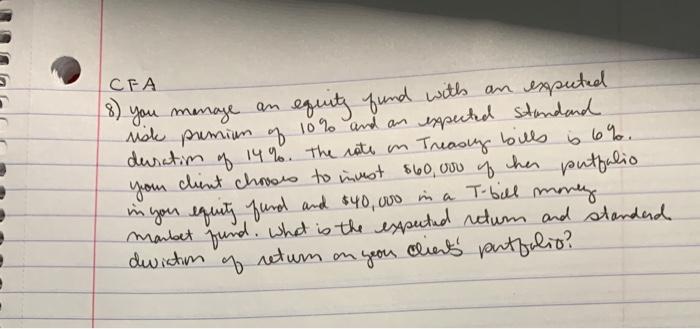 CFA
8) you manage an equity fund with an expected
risk premium of 10% and an expected standard
deviation of 14%. The rate on Treasury bills is 6%.
your client chooses to invest $60,000 of her portfolio
in your equity fund and $40,000 in a T-bill money
market fund. What is the expected return and standard
deviation of return on your client's portfolio?